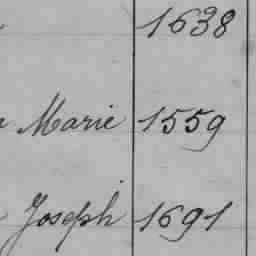 1638
Marie 1559
Joseph 1691